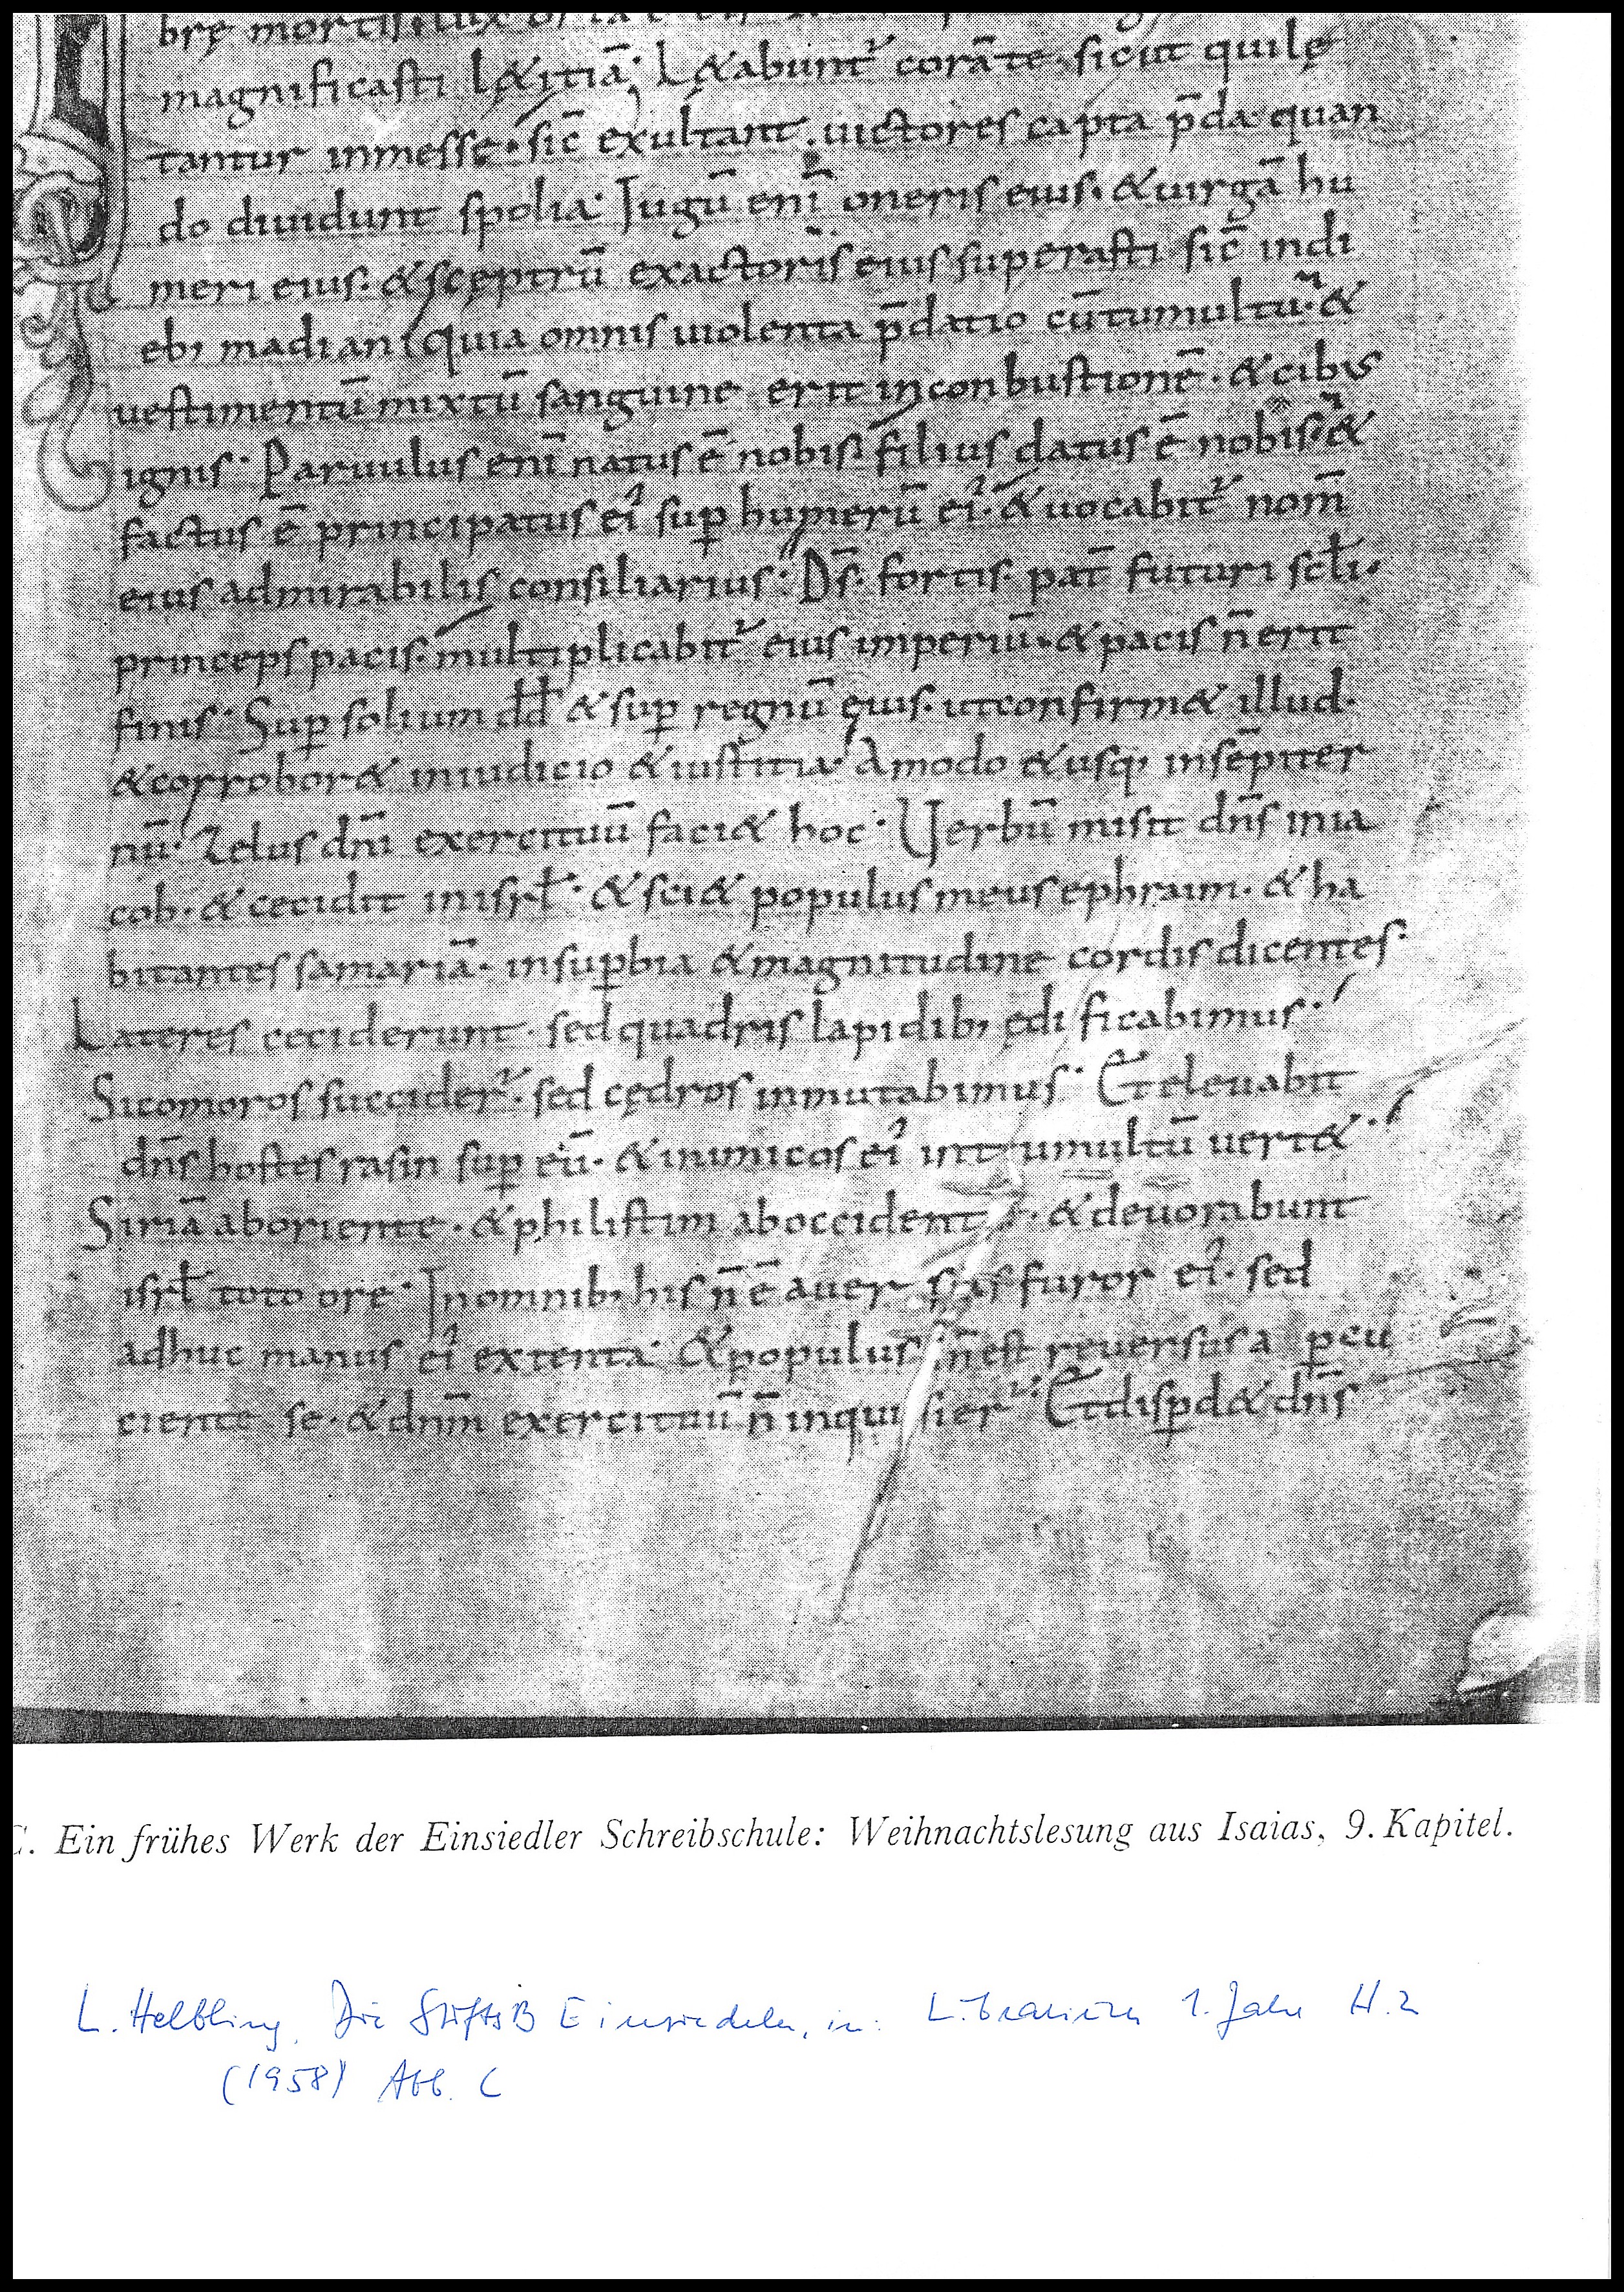 brę mortis lux orta
magnificasti l&itiā· L&abunt᷑ corā te· sicut quilę
tantur in messe· sic̄ exultant· uictores capta p̄da· quan
do diuidunt spolia· Iugū enī oneris eius· & uirgā hu
meri eius· & scęptrū exactoris eius superasti· sic̄ in di
eb; madian quia omnis uiolenta p̄datio cū tumultu· &
uestimentū mixtū sanguine erit in conbustionē· & cibus
ignis· Paruulus enī natus ē nobis· filius datus ē nobis· &
factus ē principatus eiꝰ suꝑ humerū eiꝰ· & uocabit᷑ nom̄
eius admirabilis consiliarius· Ds̄ fortis· pat̄ futuri scl̄i·
princeps pacis· multiplicabit᷑ eius imperiū· & pacis n̄ erit
finis· Suꝑ solium dd̄ & suꝑ regnū eius· ut confirm& illud·
& corrobor& in iudicio & iustitia· Amodo & usq; in sēpiter
nū· Zelus dn̄i exercituū faci& hoc· Uerbū misit dn̄s in ia
cob· & cecidit in isrł· & sci& populus meus ephraim· & ha
bitantes samariā· in suꝑbia & magnitudine cordis dicentes·
Lateres ceciderunt· sed quadris lapidib; ędificabimus·
Sicomoros succider᷑· sed cędros inmutabimus· Et eleuabit
dn̄s hostes rasin suꝑ eū· & inimicos eiꝰ in tumultū uert&·
Siriā ab oriente· & philistim ab occidente· & deuorabunt
isrł toto ore· In omnib; his n̄ ē auersus furor eiꝰ· sed
adhuc manus eiꝰ extenta· & populus n̄ est reuersus a ꝑcu
ciente se· & dnm̄ exercituū n̄ inquisier᷑· Et disꝑd& dn̄s
C. Ein frühes Werk der Einsiedler Schreibschule: Weihnachtslesung aus Isaias, 9. Kapitel.
L. Helbling, Die StiftsB Einsiedeln, in: Librarium 1. Jahr H. 2
(1958) Abb. C